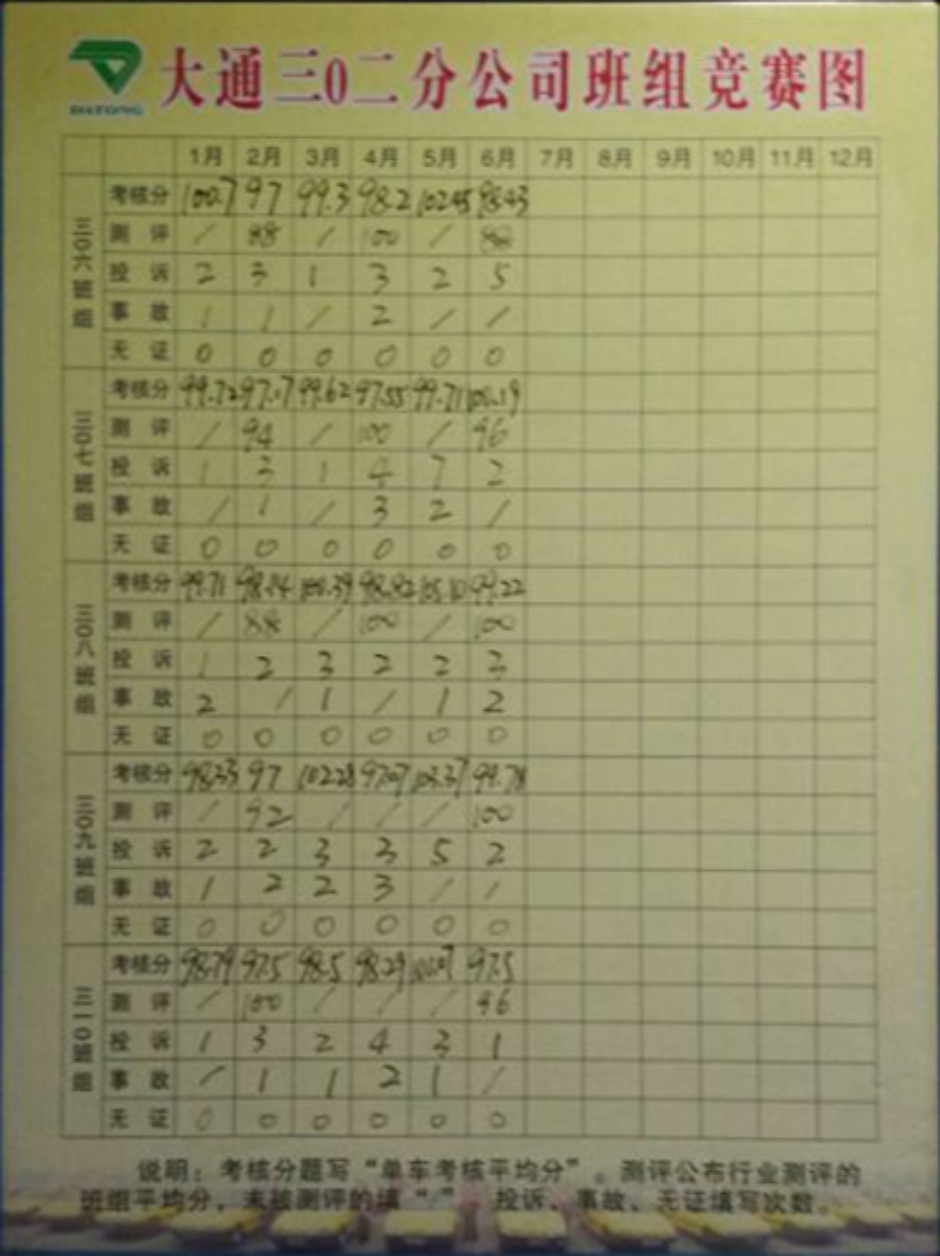 DATONG
大通三0二分公司班组竞赛图
1月 2月 3月 4月 5月 6月 7月 8月 9月 10月 11月 12月
三0六班组
考核分 100.7 97 99.3 98.2 102.45 98.43
测评 / 88 / 100 /
投诉 2 3 1 3 2 5
事故 1 1 / 2 / /
无证 0 0 0 0 0 0
三0七班组
考核分 99.72 97.17 99.62 97.55 99.71 100.19
测评 / 94 / 100 / 96
投诉 1 3 1 4 7 2
事故 / 1 / 3 2 /
无证 0 0 0 0 0 0
三0八班组
考核分 99.71 98.14 100.39 98.82 105.10 99.22
测评 / 88 / 100 / 100
投诉 1 2 3 2 2 3
事故 2 / 1 / 1 2
无证 0 0 0 0 0 0
三0九班组
考核分 98.33 97 102.28 97.07 103.37 99.78
测评 / 92 / / / 100
投诉 2 2 3 3 5 2
事故 1 2 2 3 / /
无证 0 0 0 0 0 0
三一0班组
考核分 98.79 97.5 98.5 98.29 97.5
测评 / 100 / / / 96
投诉 1 3 2 4 3 1
事故 / 1 1 2 1 /
无证 0 0 0 0 0 0
说明：考核分题写“单车考核平均分”。测评公布行业测评的
班组平均分，未被测评的填“/” 投诉、事故、无证填写次数。